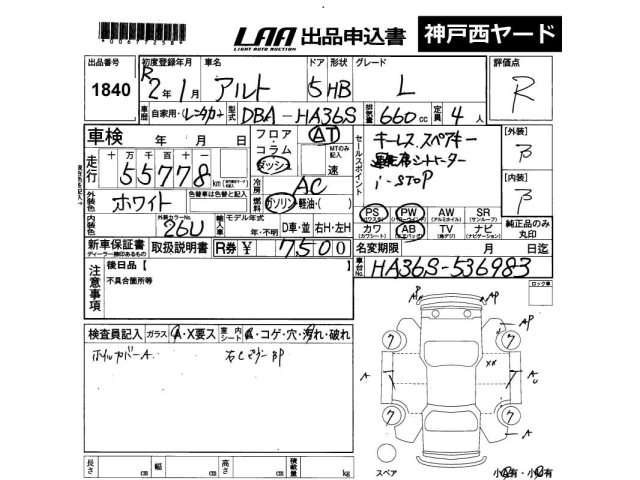 *00677258*
LAA 出品申込書 神戸西ヤード
LIGHT AUTO AUCTION
出品番号 初度登録年月 車名 ドア 形状 グレード 評価点
1840 R2年1月 アルト 5 HB L R
車歴 自家用・レンタカー 型式 DBA-HA36S 排気量 660cc 定員 4人
車検 年 月 日 フロア・コラム・ダッシュ AT セールスポイント キーレス.スペアキー [外装]
MTのみ記入 速 運転席シートヒーター B
走行 十 万 千 百 十 一 55778km 冷房 AC i-STOP [内装]
外装色 ホワイト 色替車は色替と記入 燃料 ガソリン・軽油・( ) B
PS (パワステ) PW (パワーウインド) AW (アルミホイル) SR (サンルーフ)
内装色 外装カラーNo. 26U 輸入車 モデル年式 年・不明 D車・並 右H・左H カワ (カワシート) AB (エアバッグ) TV (地デジ) ナビ (ナビゲーション) 純正品のみ丸印
新車保証書 取扱説明書 R券 ¥ 7,500 名変期限 月 日迄
ディーラー捺印あるもの
注意事項 後日品【 】 車台No. HA36S-536983
不具合箇所等 ロック車
検査員記入 ガラス A・X要ス 車内シート A・コゲ・穴・汚れ・破れ
ホイルカバーA 右Cピラー BP
AP AP AP
7 7
A XX A U
7 7
A
長さ cm 幅 cm 高さ cm 積載量 kg スペア 小A有・小U有